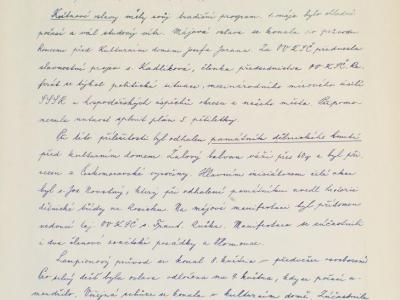 Květnové oslavy měly svůj tradiční program. 1. máje bylo chladné
počasí a vál studený vítr. Májová oslava se konala po průvodu
kovcem před Kulturním domem Josefa Jorana. Za OV KSČ přednesla
slavnostní projev s. Kadlíková, členka předsednictva OV KSČ. Re-
ferát se týkal politické situace, mezinárodního mírového úsilí
SSSR a hospodářských úspěchů okresu a našeho města. Připome-
nula nutnost splnit plán 5. pětiletky.
Při této příležitosti byl odhalen památník dělnického hnutí
před kulturním domem. Žulový balvan váží přes 60 q a byl při-
vezen z Českomoravské vysočiny. Hlavním iniciátorem celé akce
byl s. Jos. Novotný, který při odhalení památníku uvedl historii
dělnické třídy na Kosicku. Na májové manifestaci byl přítomen
vedoucí taj. OV KSČ s. Frant. Ručka. Manifestace se zúčastnili
i dva členové sovětské posádky z Olomouce.
Lampionový průvod se konal 8. května – předvečer osvobození
Pro silný déšť byla oslava odložena na 9. května, kdy se počasí u-
moudřilo. Vlastní oslava se konala v kulturním domě. Zúčastnila